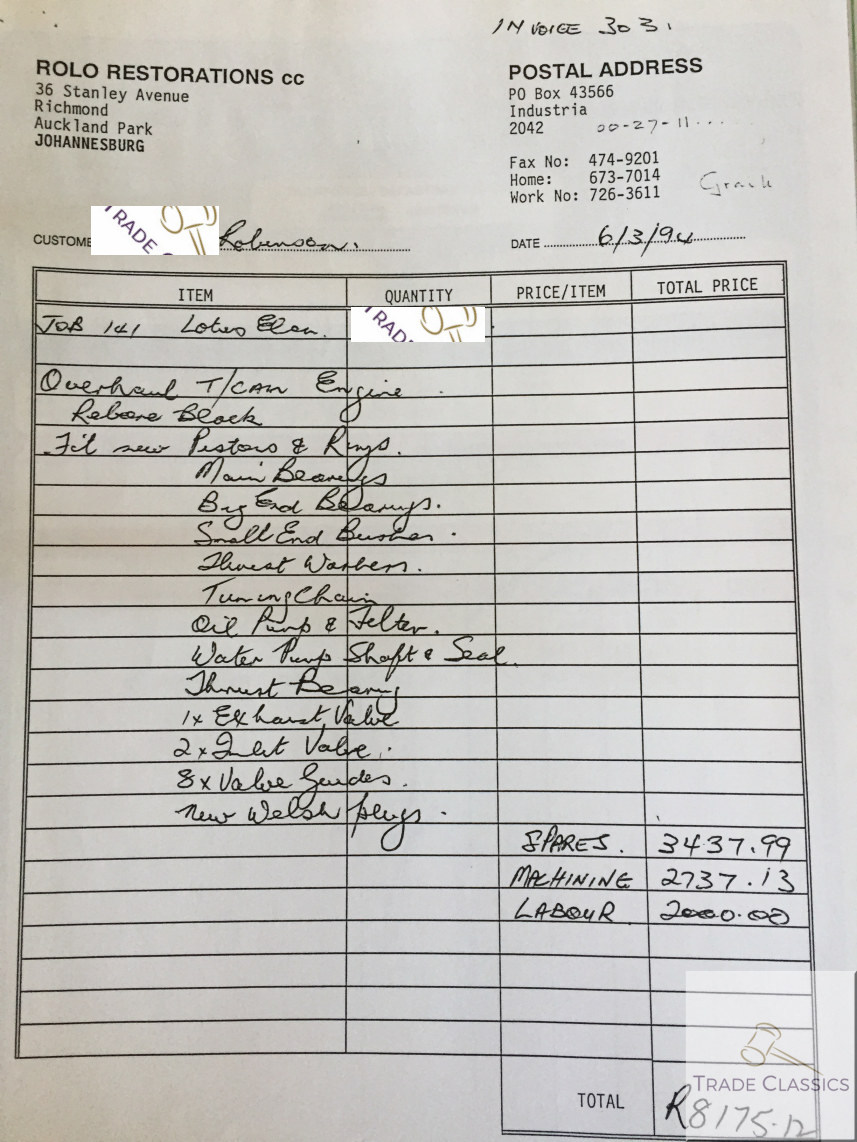 INVOICE 303.
ROLO RESTORATIONS cc
36 Stanley Avenue
Richmond
Auckland Park
JOHANNESBURG
POSTAL ADDRESS
PO Box 43566
Industria
2042 00-27-11...
Fax No: 474-9201
Home: 673-7014
Work No: 726-3611
CUSTOME Robinson. DATE 6/3/94
TRADE
ITEM QUANTITY PRICE/ITEM TOTAL PRICE
JOB 141 Lotus Elan.
TRAD
Overhaul T/CAM Engine
Rebore Block
Fit new Pistons & Rings.
Main Bearings
Big End Bearings.
Small End Bushes.
Thrust Washers.
Timing Chain
Oil Pump & Filter.
Water Pump Shaft & Seal.
Thrust Bearing
1x Exhaust Valve
2x Inlet Valve.
8x Valve Guides.
New Welsh plugs.
SPARES. 3437.99
MACHINING 2737.13
LABOUR 2000.00
TOTAL R8175.12
TRADE CLASSICS